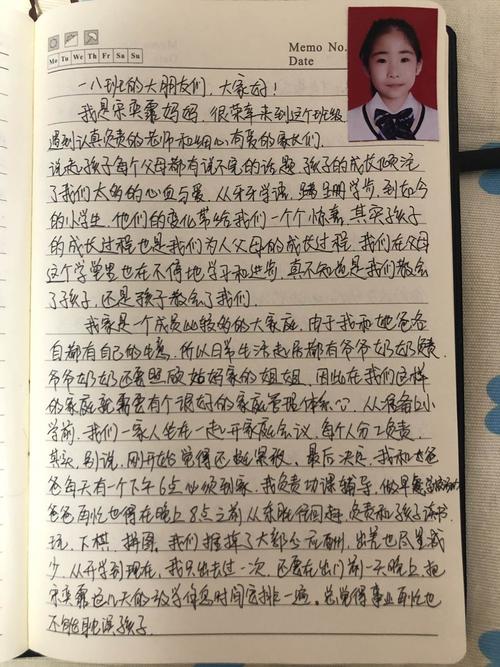 Mo Tu We Th Fr Sa Su
Memo No.
Date
一八班的大朋友们,大家好!
我是宋奕霏妈妈,很荣幸来到这个班级
遇到认真负责的老师和细心有爱的家长们.
说起孩子每个父母都有说不完的话题.孩子的成长倾注
了我们太多的心血与爱.从牙牙学语,蹒跚学步,到如今
的小学生.他们的变化带给我们一个个惊喜.其实孩子
的成长过程也是我们为人父母的成长过程.我们在父母
这个学堂里也在不停地学习和进步.真不知道是我们教会
了孩子,还是孩子教会了我们.
我家是一个成员比较多的大家庭.由于我和她爸各
自都有自己的生意,所以日常生活起居都有爷爷奶奶负责.
爷爷奶奶还要照顾姑妈家的姐姐,因此在我们这样
的家庭就需要有个很好的家庭管理体系.从准备上小
学前,我们一家人坐在一起开家庭会议,每个人分工负责.
其实,别说,刚开始觉得还挺.最后决定,我和她爸
爸每天有一个下午6点必须到家.我负责功课辅导,做早餐
爸爸再忙也得在晚上8点之前从东胜往回赶,负责和孩子读书.
玩,下棋,拼图.我们推掉了大部分应酬,出差也尽量减
少.从开学到现在,我只出去过一次,还要在出门前一天晚上,把
宋奕霏这几天的放学作息时间安排一遍.总觉得事业再忙也
不能耽误孩子.